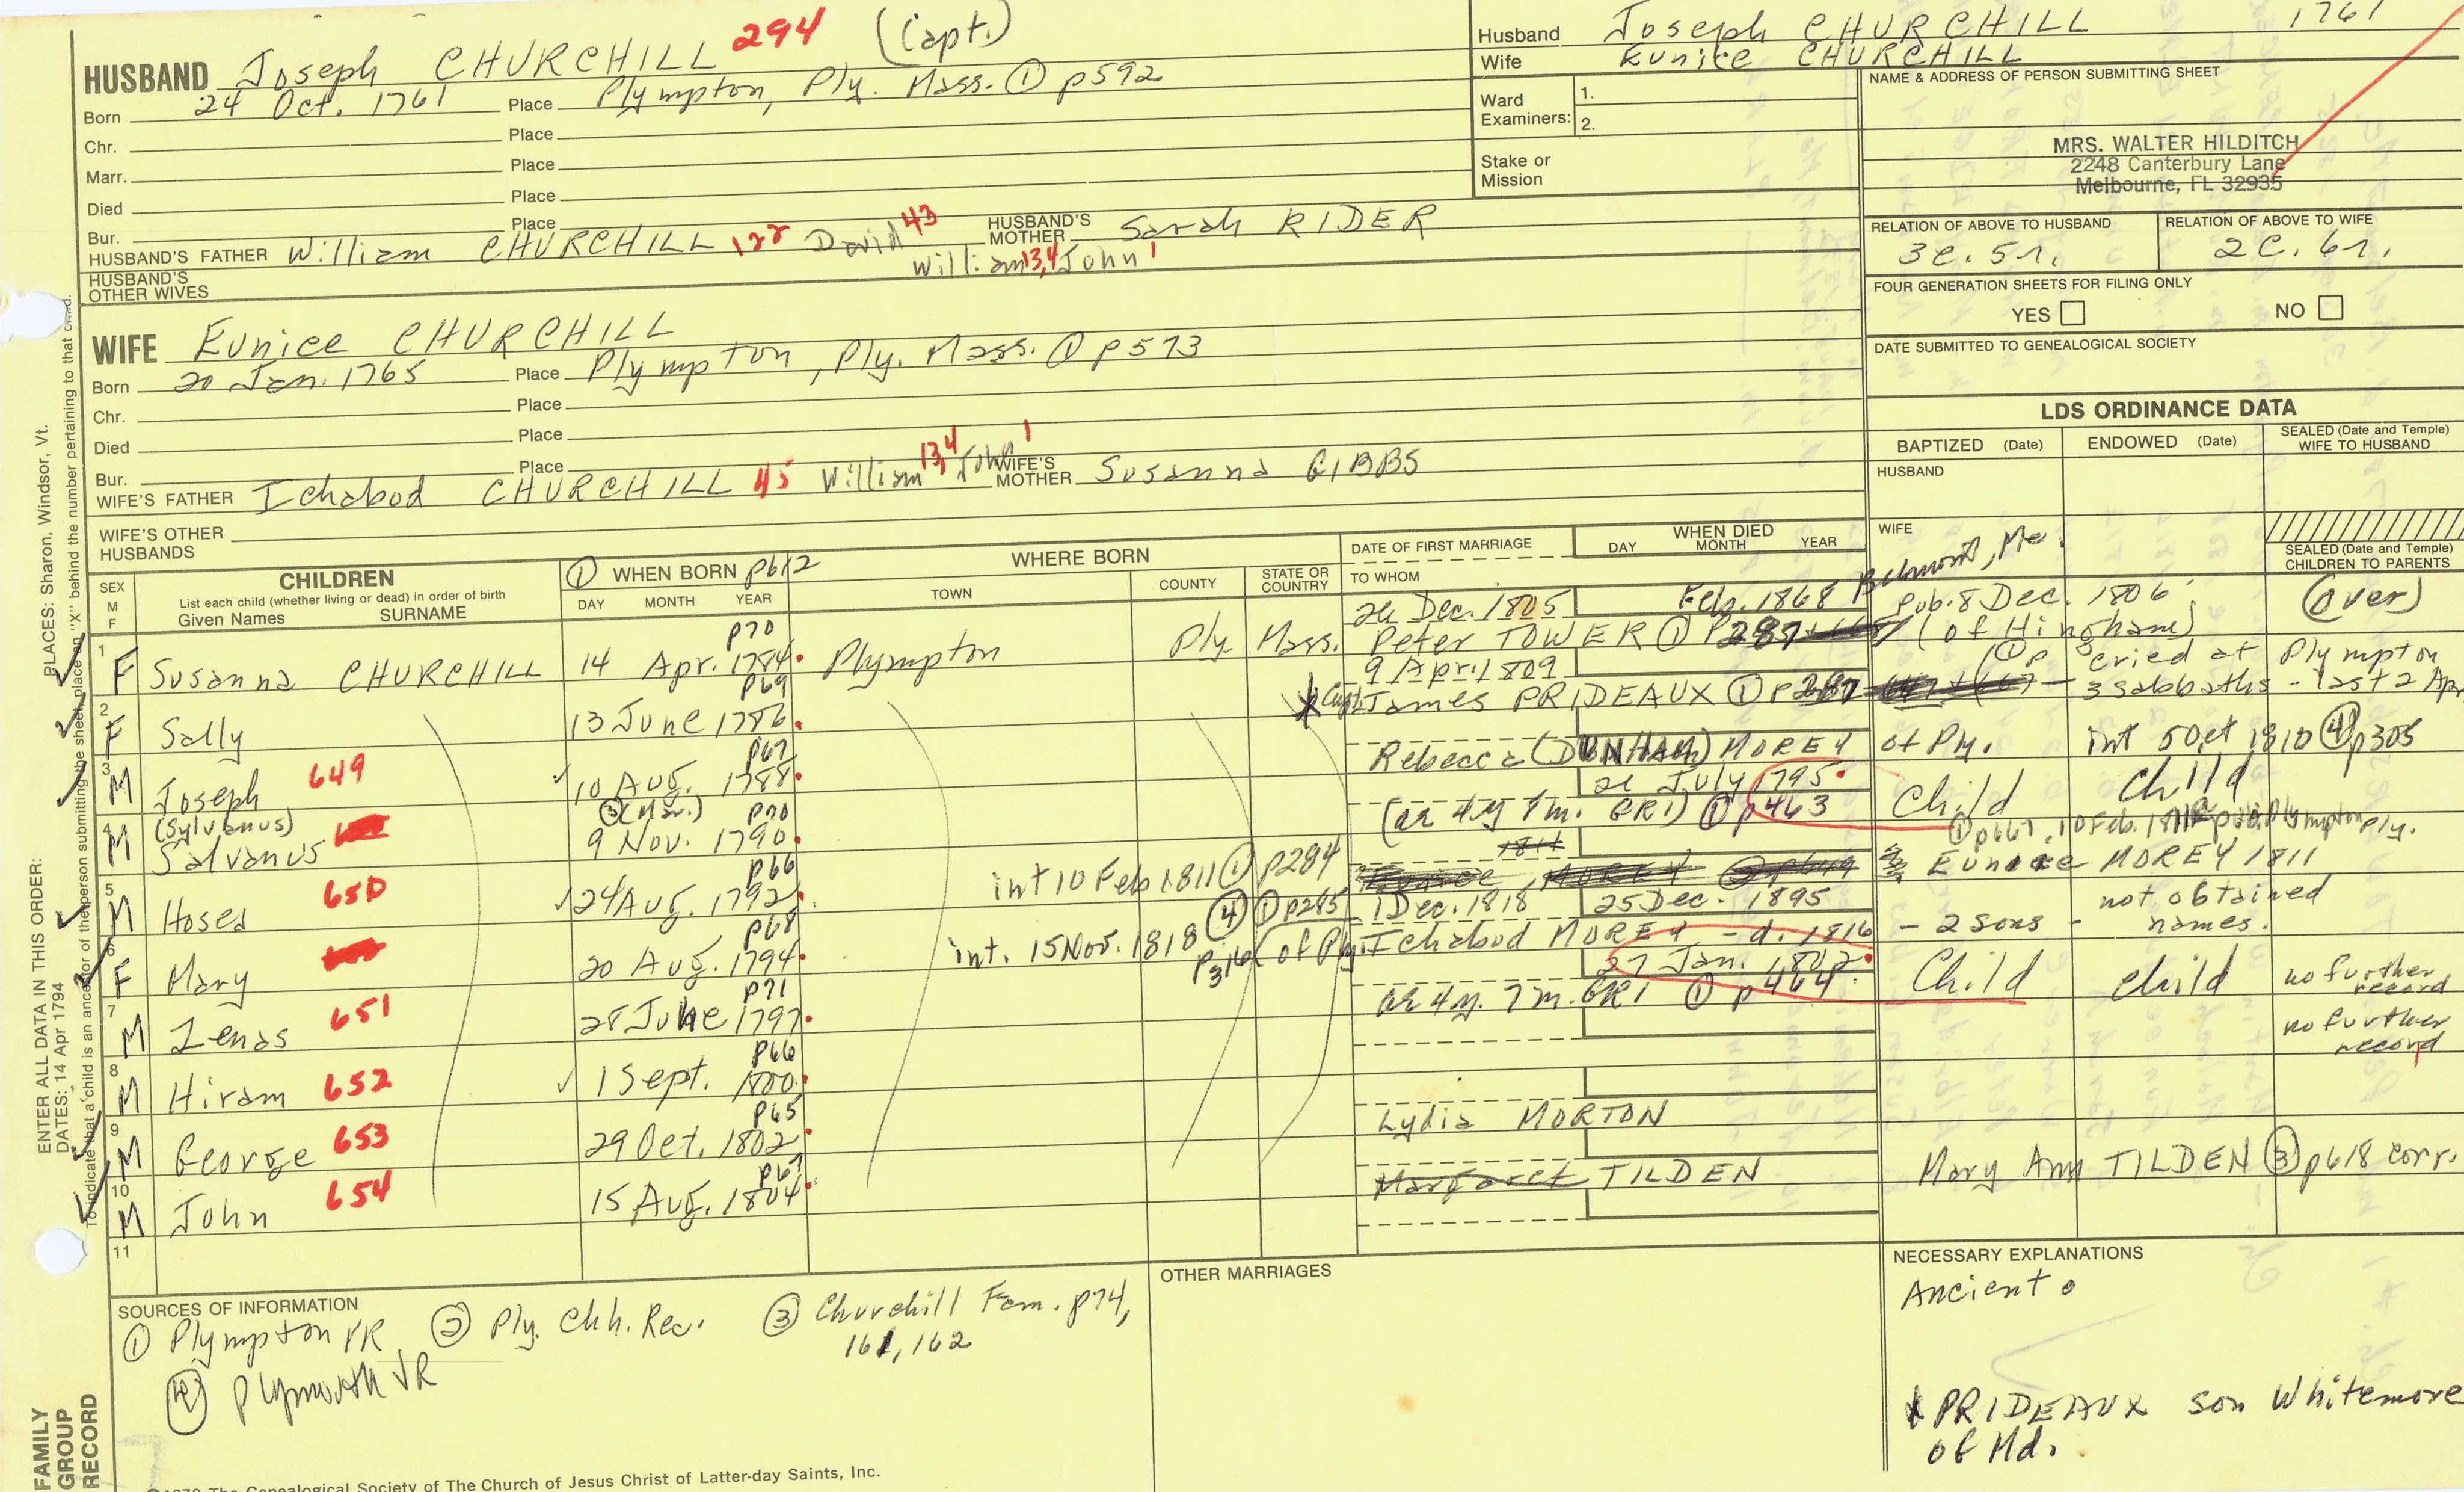 HUSBAND Joseph CHURCHILL 294 (Capt.)
Born 24 Oct. 1761 Place Plympton, Ply. Mass. ① p592
Chr. Place
Marr. Place
Died Place
Bur. Place
HUSBAND'S FATHER William CHURCHILL 122 David 43 William 13,4 John 1 HUSBAND'S MOTHER Sarah RIDER
HUSBAND'S OTHER WIVES
WIFE Eunice CHURCHILL
Born 20 Jan. 1765 Place Plympton, Ply. Mass. ① p573
Chr. Place
Died Place
Bur. Place
WIFE'S FATHER Ichabod CHURCHILL 45 William 13,4 John 1 WIFE'S MOTHER Susanna GIBBS
WIFE'S OTHER HUSBANDS
Husband Joseph CHURCHILL 1761
Wife Eunice CHURCHILL
Ward Examiners: 1.
2.
Stake or Mission
NAME & ADDRESS OF PERSON SUBMITTING SHEET
MRS. WALTER HILDITCH
2248 Canterbury Lane
Melbourne, FL 32935
RELATION OF ABOVE TO HUSBAND RELATION OF ABOVE TO WIFE
3c. 5r. 2c. 6r.
FOUR GENERATION SHEETS FOR FILING ONLY
YES NO
DATE SUBMITTED TO GENEALOGICAL SOCIETY
LDS ORDINANCE DATA
BAPTIZED (Date) ENDOWED (Date) SEALED (Date and Temple) WIFE TO HUSBAND
HUSBAND
WIFE
SEALED (Date and Temple) CHILDREN TO PARENTS
SEX M F
CHILDREN
List each child (whether living or dead) in order of birth
Given Names SURNAME
① WHEN BORN p612
DAY MONTH YEAR
WHERE BORN
TOWN COUNTY STATE OR COUNTRY
DATE OF FIRST MARRIAGE
TO WHOM
WHEN DIED
DAY MONTH YEAR
1 F Susanna CHURCHILL p70 14 Apr. 1784 Plympton Ply Mass.
26 Dec. 1805 Feb. 1868 Belmont, Me. Pub. 8 Dec. 1806 (over)
Peter TOWER ① p287 (of Hingham)
2 F Sally p69 13 June 1786
9 April 1809 cried at Plympton
* Capt. James PRIDEAUX ① p287 3 sabbaths - last 2 Apr
3 M Joseph 649 p67 10 Aug. 1788
Rebecca (DUNHAM) MOREY of Ply. int 5 Oct 1810 ④ p305
4 M (Sylvanus) Salvanus ③ (Nov.) p70 9 Nov. 1790
July 1795 Child Child
(ae 4y 8m. GR1) ① p463
① p667, 10 Feb. 1811
5 M Hosea 650 p66 24 Aug. 1792
int 10 Feb 1811 ① p284 Eunice MOREY 1811
6 F Mary p68 20 Aug. 1794
④ ① p285 1 Dec. 1818 25 Dec. 1895 not obtained
int. 15 Nov. 1818 p316 (of Ply. Ichabod MOREY - d. 1816 - 2 sons - names.
7 M Zenas 651 p71 28 June 1797
27 Jan. 1802 Child child no further record
ae 4y. 7m. GR1 ① p464
8 M Hiram 652 p66 1 Sept. 1800 no further record
9 M George 653 p65 29 Oct. 1802 Lydia MORTON
10 M John 654 p67 15 Aug. 1804 Margaret TILDEN Mary Ann TILDEN ③ p618 corr.
11
SOURCES OF INFORMATION
① Plympton VR ② Ply. Chh. Rec. ③ Churchill Fam. p74, 161, 162
④ Plymouth VR
OTHER MARRIAGES
NECESSARY EXPLANATIONS
Ancient o
* PRIDEAUX son Whitemore of Md.
PLACES: Sharon, Windsor, Vt.
ENTER ALL DATA IN THIS ORDER:
DATES: 14 Apr 1794
FAMILY GROUP RECORD
The Genealogical Society of The Church of Jesus Christ of Latter-day Saints, Inc.